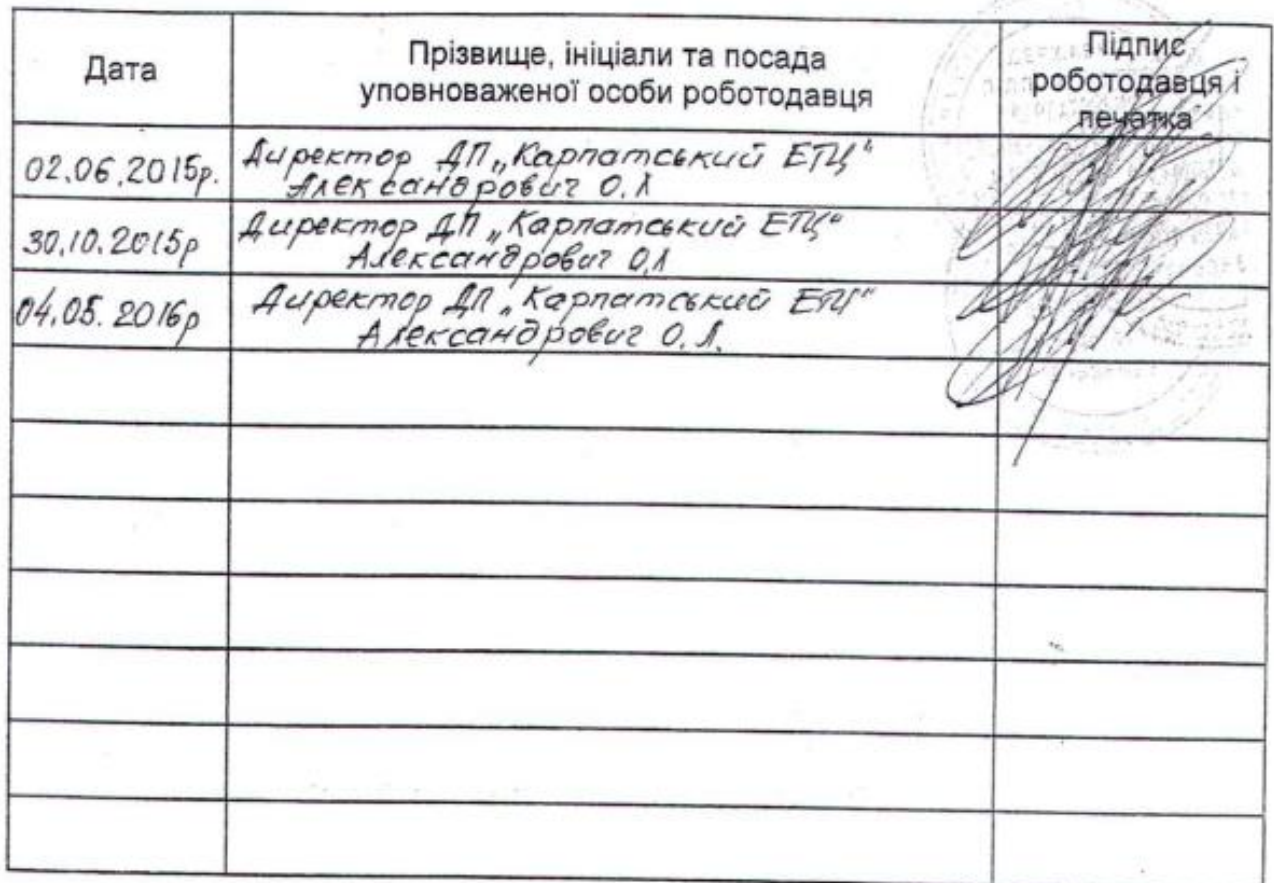 Дата
Прізвище, ініціали та посада
уповноваженої особи роботодавця
Підпис
роботодавця і
печатка
02.06.2015р.
Директор ДП „Карпатський ЕТЦ“
Александрович О.Л
30.10.2015р
Директор ДП „Карпатський ЕТЦ“
Александрович О.Л
04.05.2016р
Директор ДП „Карпатський ЕТЦ“
Александрович О.Л.